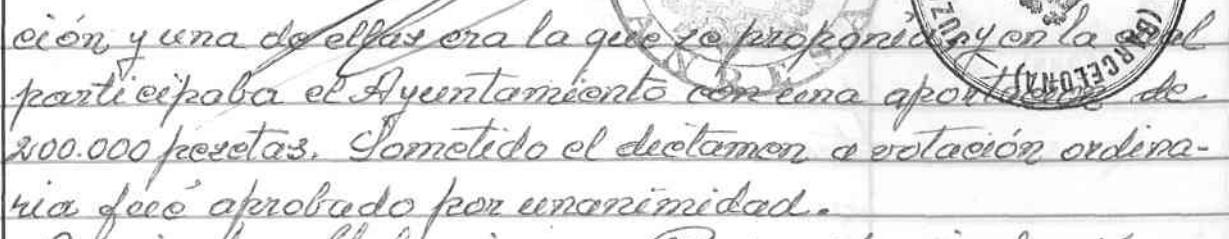 ción y una de ellas era la que se proponía y en la cual
participaba el Ayuntamiento con una aportación de
200.000 pesetas. Sometido el dictamen a votación ordina-
ria fué aprobado por unanimidad.
(BARCELONA)